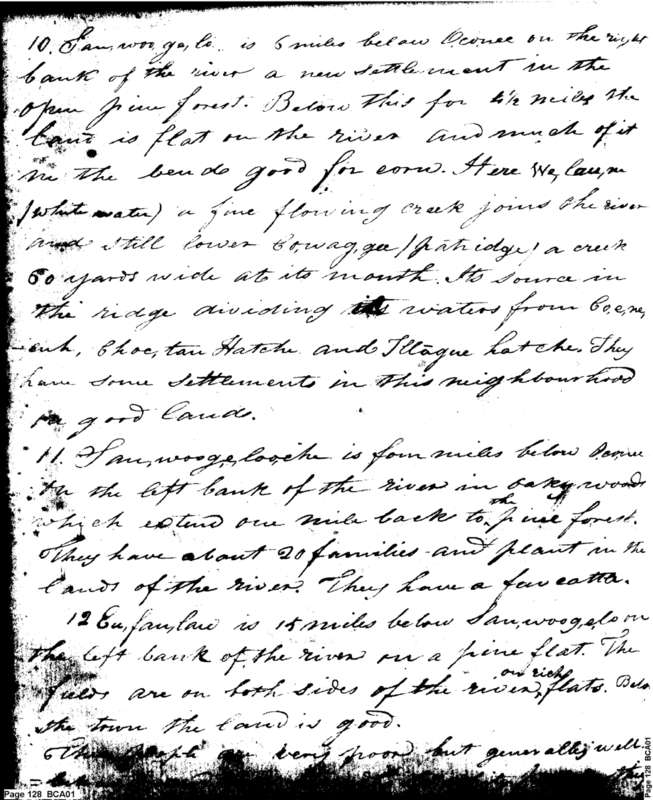 10. Sau,woo,ge,lo. is 6 miles below Oconee on the right
bank of the river a new settlement in the
open pine forest. Below this for 4½ miles the
land is flat on the river and much of it
in the bends good for corn. Here We,lau,ne
(white water) a fine flowing creek joins the river
and still lower Co,wag,gee (patridge) a creek
60 yards wide at its mouth. Its source in
the ridge dividing its waters from Co,e,ne,
cuh, Choc,tau Hatche and Illāgue hatche. They
have some settlements in this neighbourhood
on good lands.
11. Sau,woog,e,loo,che is four miles below Oco,nee
on the left bank of the river in oaky woods
which extend one mile back to the pine forest.
They have about 20 families and plant in the
lands of the river. They have a few cattle.
12 Eu,fau,lau is 15 miles below Sau,woog,e,lo on
the left bank of the river on a pine flat. The
fields are on both sides of the river, on rich flats. Below
the town the land is good.
very poor but generally well
Page 128 BCA01
Page 128 BCA01